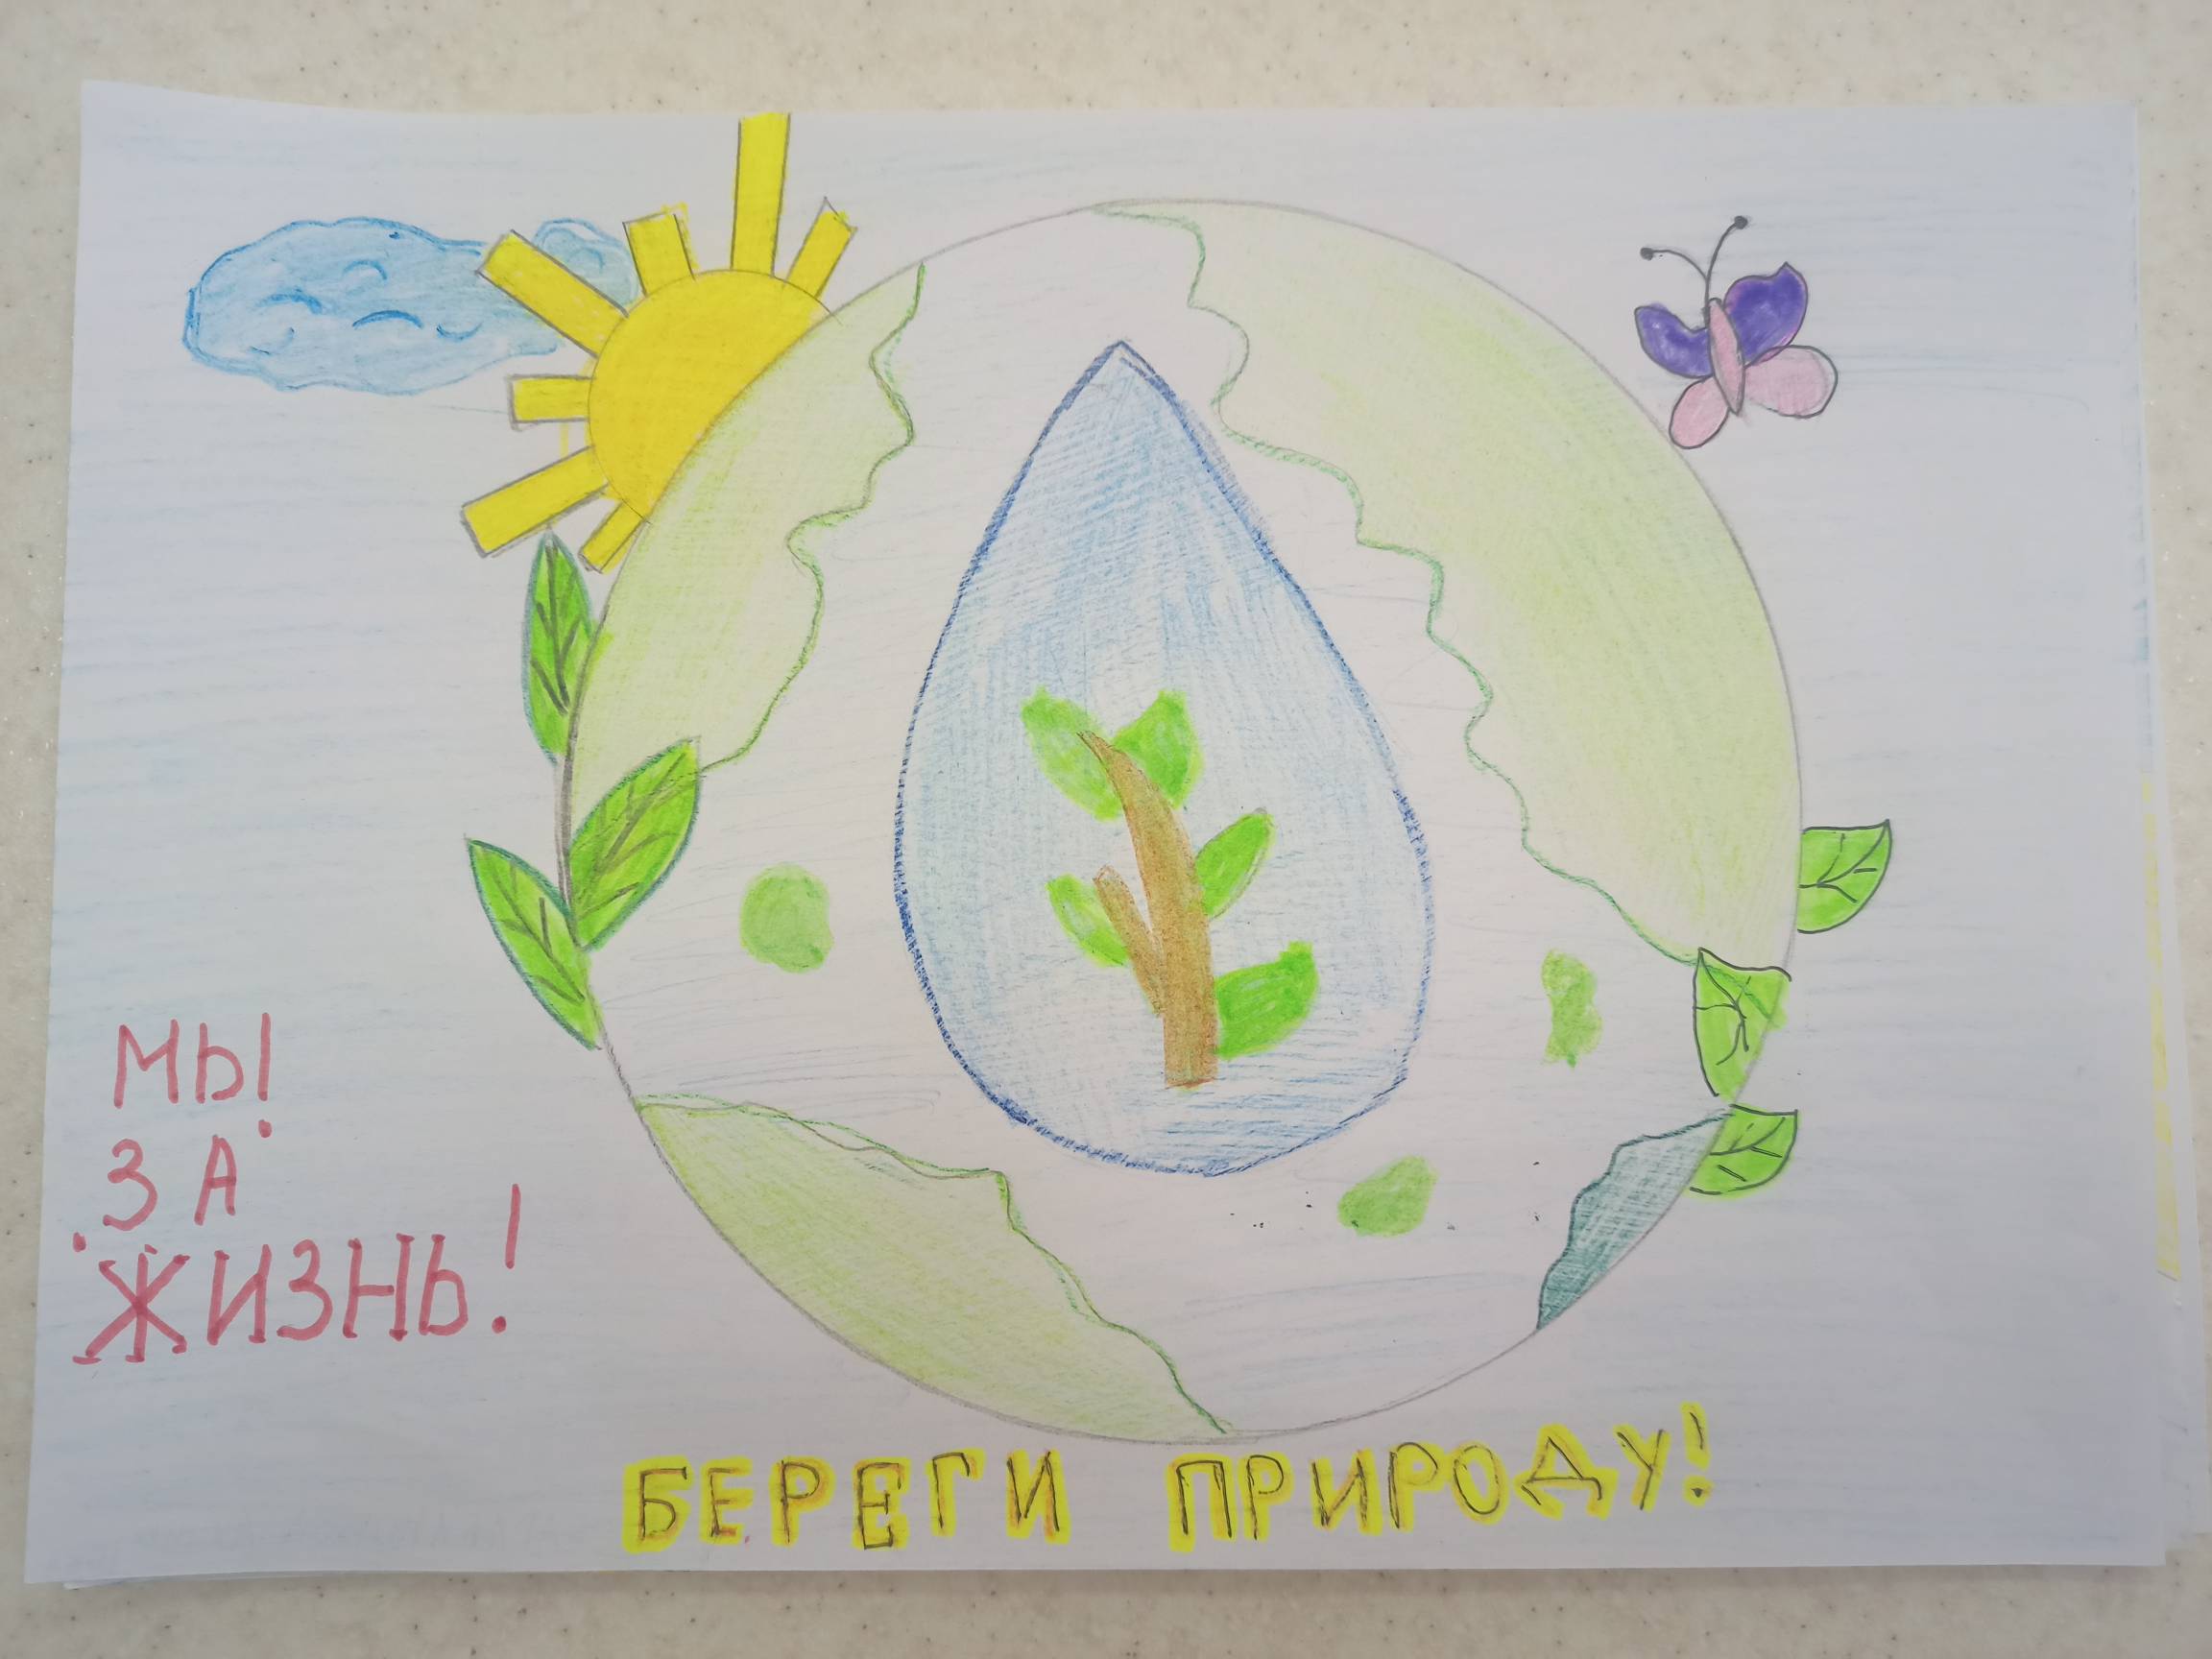 МЫ
ЗА
ЖИЗНЬ!
БЕРЕГИ ПРИРОДУ!